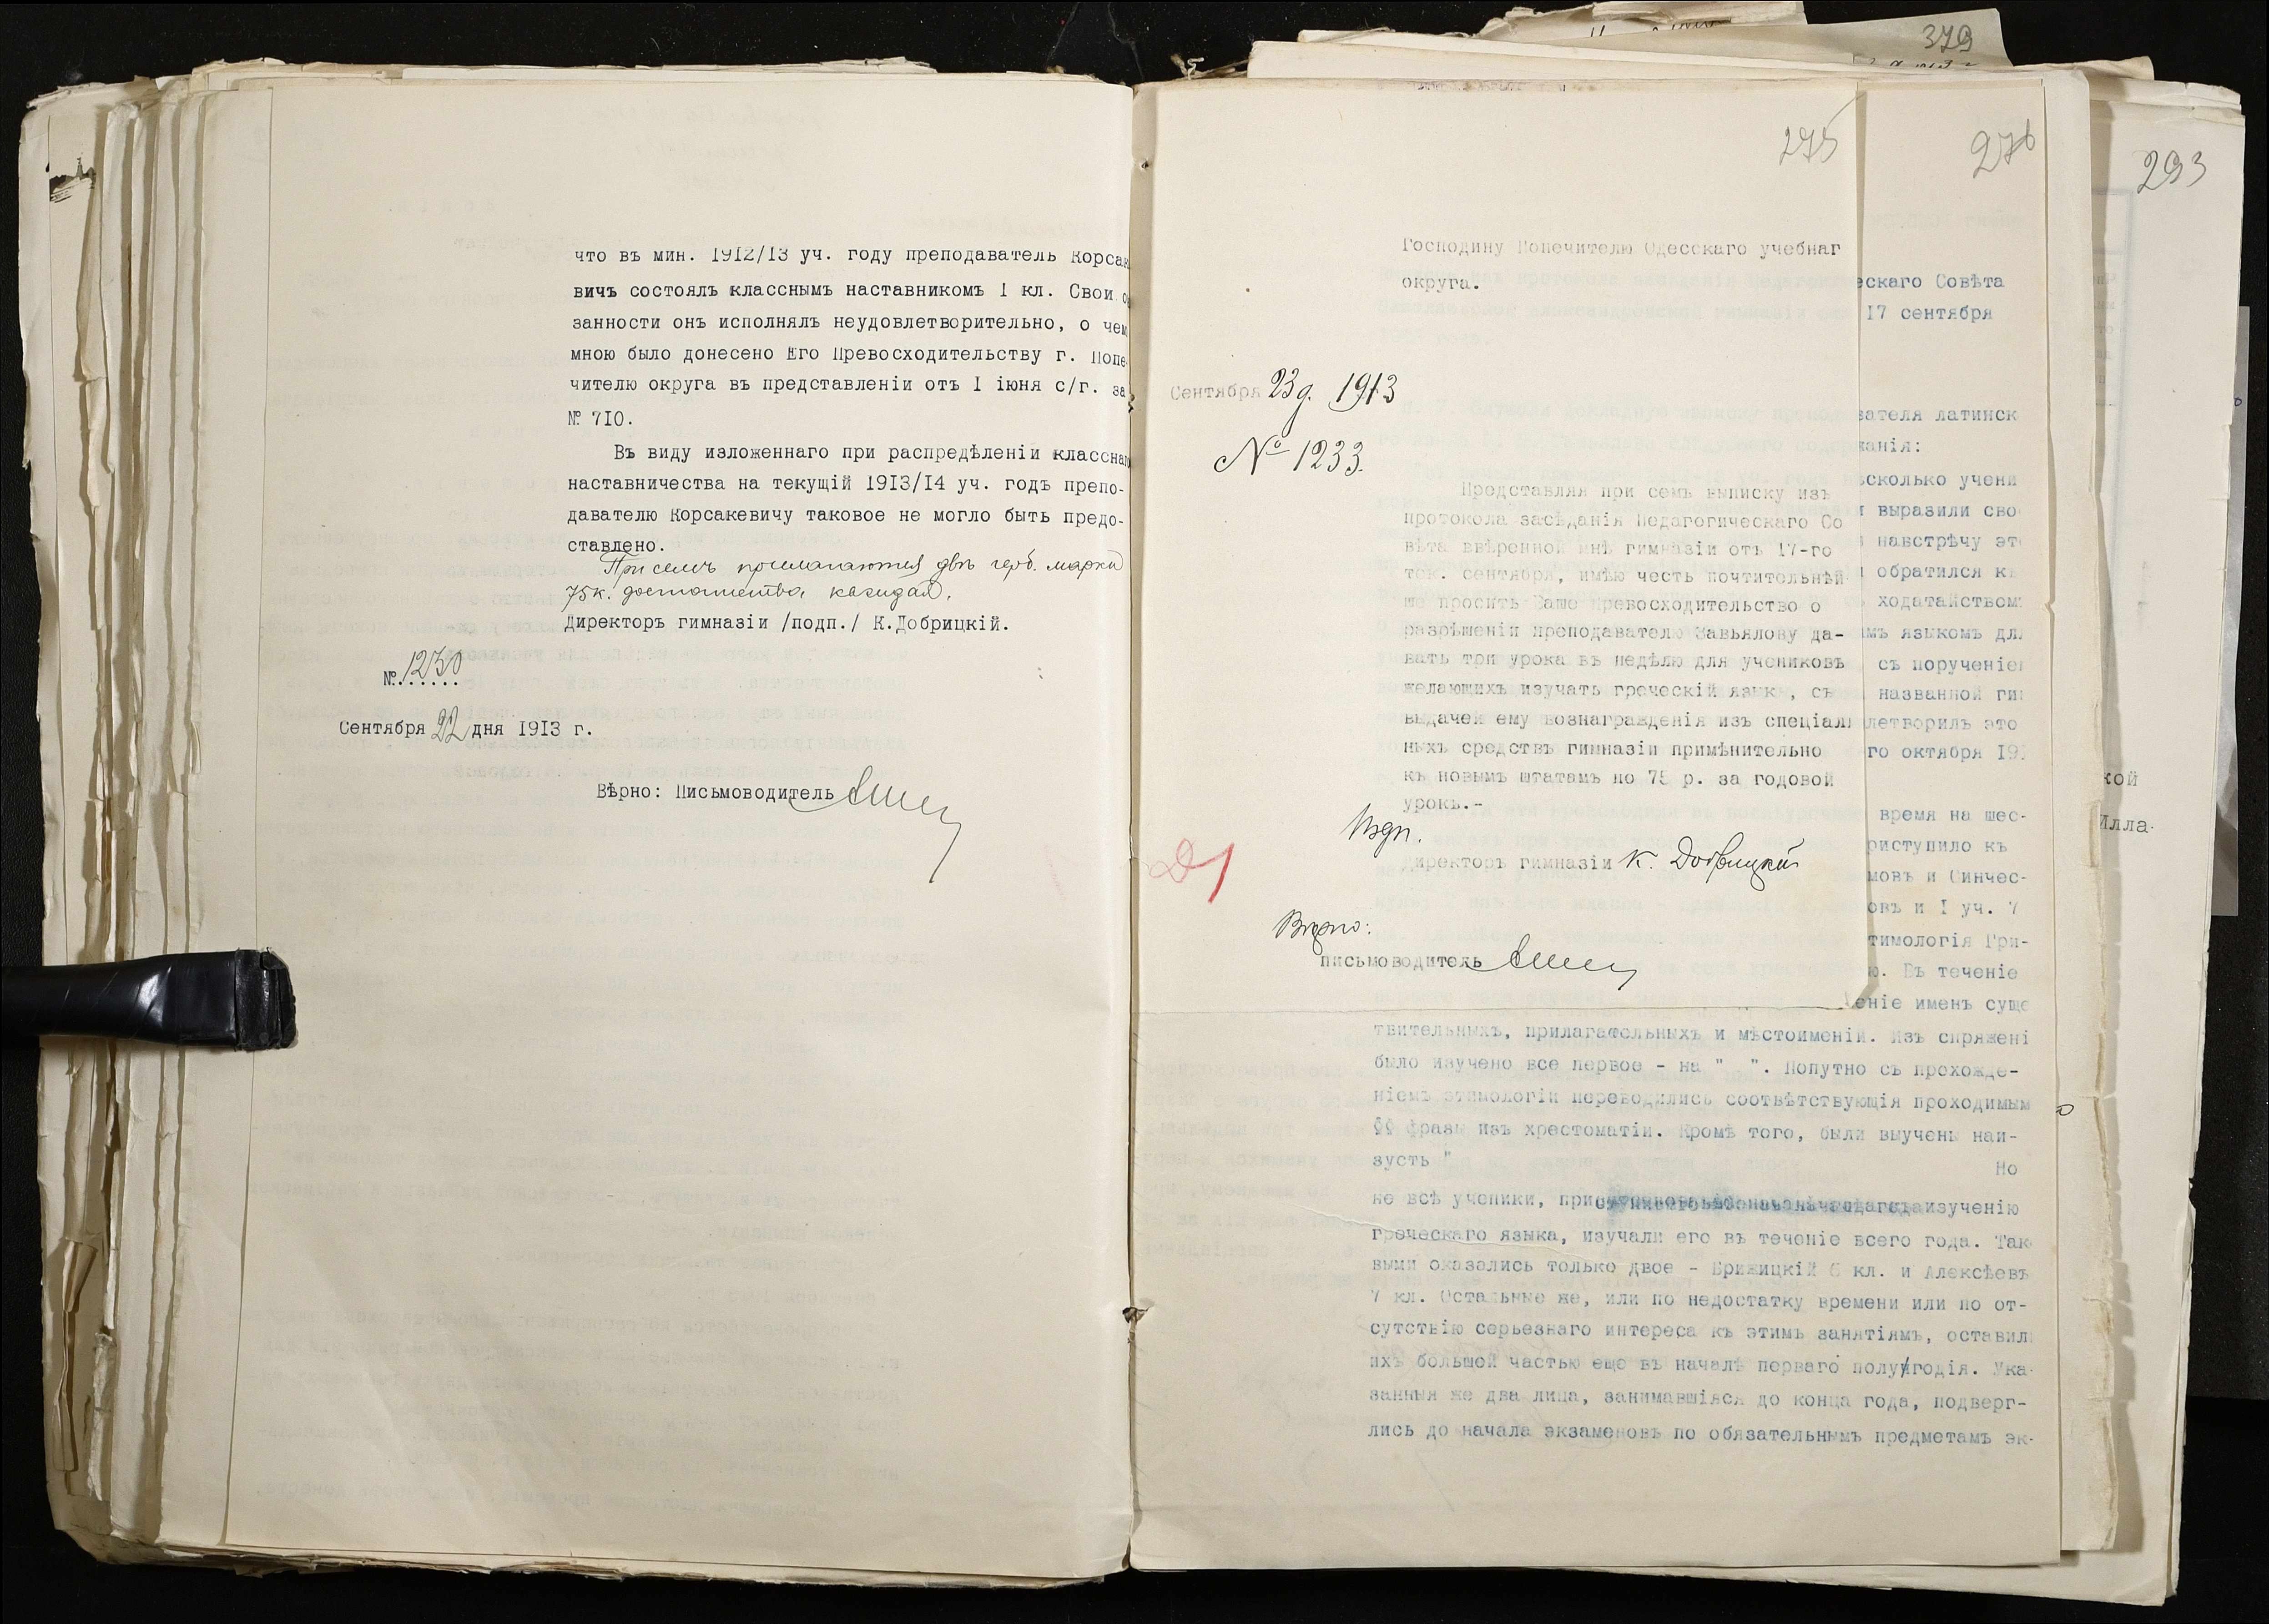 что въ мин. 1912/13 уч. году преподаватель Корсак
вичъ состоялъ класснымъ наставникомъ 1 кл. Свои о
занности онъ исполнялъ неудовлетворительно, о чем
мною было донесено Его Превосходительству г. Попе-
чителю округа въ представленіи отъ I іюня с/г. за
№ 710.
Въ виду изложеннаго при распредѣленіи класснаг
наставничества на текущій 1913/14 уч. годъ препо-
давателю Корсакевичу таковое не могло быть предо-
ставлено.
При семъ прилагаются двѣ герб. марки
75 к. достоинства каждая.
Директоръ гимназіи /подп./ К.Добрицкій.
№ 1230
Сентября 22 дня 1913 г.
Вѣрно: Письмоводитель
379
275
276
293
Господину Попечителю Одесскаго учебнаг
округа.
Сентября 23 д. 1913
№ 1233.
Представляя при семъ выписку изъ
протокола засѣданія Педагогическаго Со
вѣта ввѣренной мнѣ гимназіи отъ 17-го
тек. сентября, имѣю честь почтительнѣй
ше просить Ваше Превосходительство о
разрѣшеніи преподавателю Завьялову да-
вать три урока въ недѣлю для учениковъ
желающихъ изучать греческій язык, съ
выдачей ему вознагражденія изъ спеціаль
ныхъ средствъ гимназіи примѣнительно
къ новымъ штатамъ по 75 р. за годовой
урокъ.-
Подп.
Директоръ гимназіи К. Добрицкій
Вѣрно:
письмоводитель
ескаго Совѣта
17 сентября
вателя латинск
жанія:
ѣсколько учени
и выразили сво
навстрѣчу это
и обратился къ
ходатайствомъ
имъ языкомъ для
съ порученіем
названной гим
летворилъ это
го октября 191
время на шес-
риступило къ
мовъ и Синчес-
овъ и I уч. 7
тимологія Гри-
ю. Въ теченіе
еніе именъ суще
твительныхъ, прилагательныхъ и мѣстоименій. Изъ спряжені
было изучено все первое - на " ". Попутно съ прохожде-
ніемъ этимологіи переводились соотвѣтствующія проходимым
§§ фразы изъ хрестоматіи. Кромѣ того, были выучены наи-
зусть " Но
не всѣ ученики, изученію
греческаго языка, изучали его въ теченіе всего года. Так
выми оказались только двое - Брижицкій 6 кл. и Алексѣевъ
7 кл. Остальные же, или по недостатку времени или по от-
сутствію серьезнаго интереса къ этимъ занятіямъ, оставил
ихъ большей частью еще въ началѣ перваго полугодія. Ука-
занныя же два лица, занимавшіяся до конца года, подверг-
лись до начала экзаменовъ по обязательнымъ предметамъ эк-
кой
Илла-